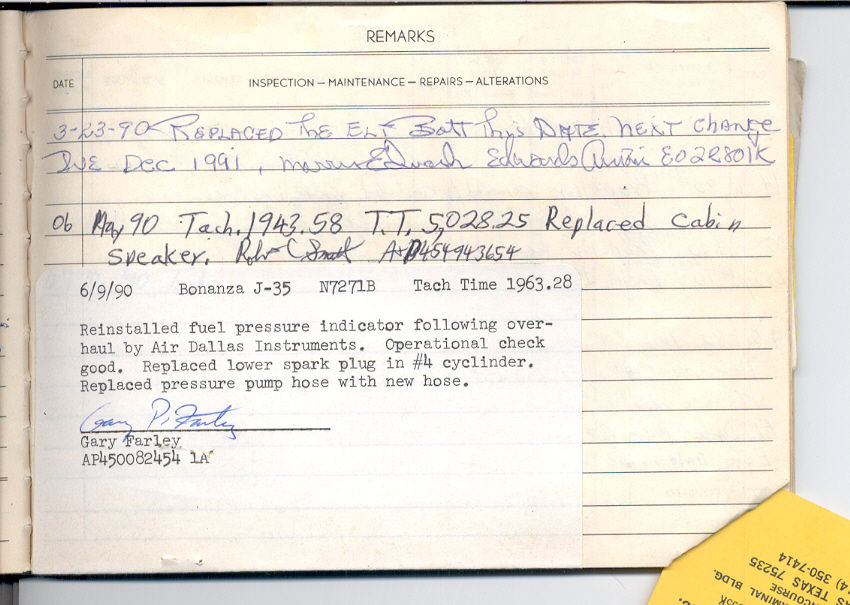 REMARKS
DATE INSPECTION — MAINTENANCE — REPAIRS — ALTERATIONS
3-23-90 REPLACED The ELT Batt This DATE. NEXT Change
Due Dec 1991, Edwards EO2R801K
06 May 90 Tach. 1943.58 T.T. 5,028.25 Replaced cabin
speaker. A+P454943654
6/9/90 Bonanza J-35 N7271B Tach Time 1963.28
Reinstalled fuel pressure indicator following over-
haul by Air Dallas Instruments. Operational check
good. Replaced lower spark plug in #4 cyclinder.
Replaced pressure pump hose with new hose.
Gary P. Farley
Gary Farley
AP450082454 IA
4) 350-7414
AS TEXAS 75235
NCOURSE
MINAL BLDG.